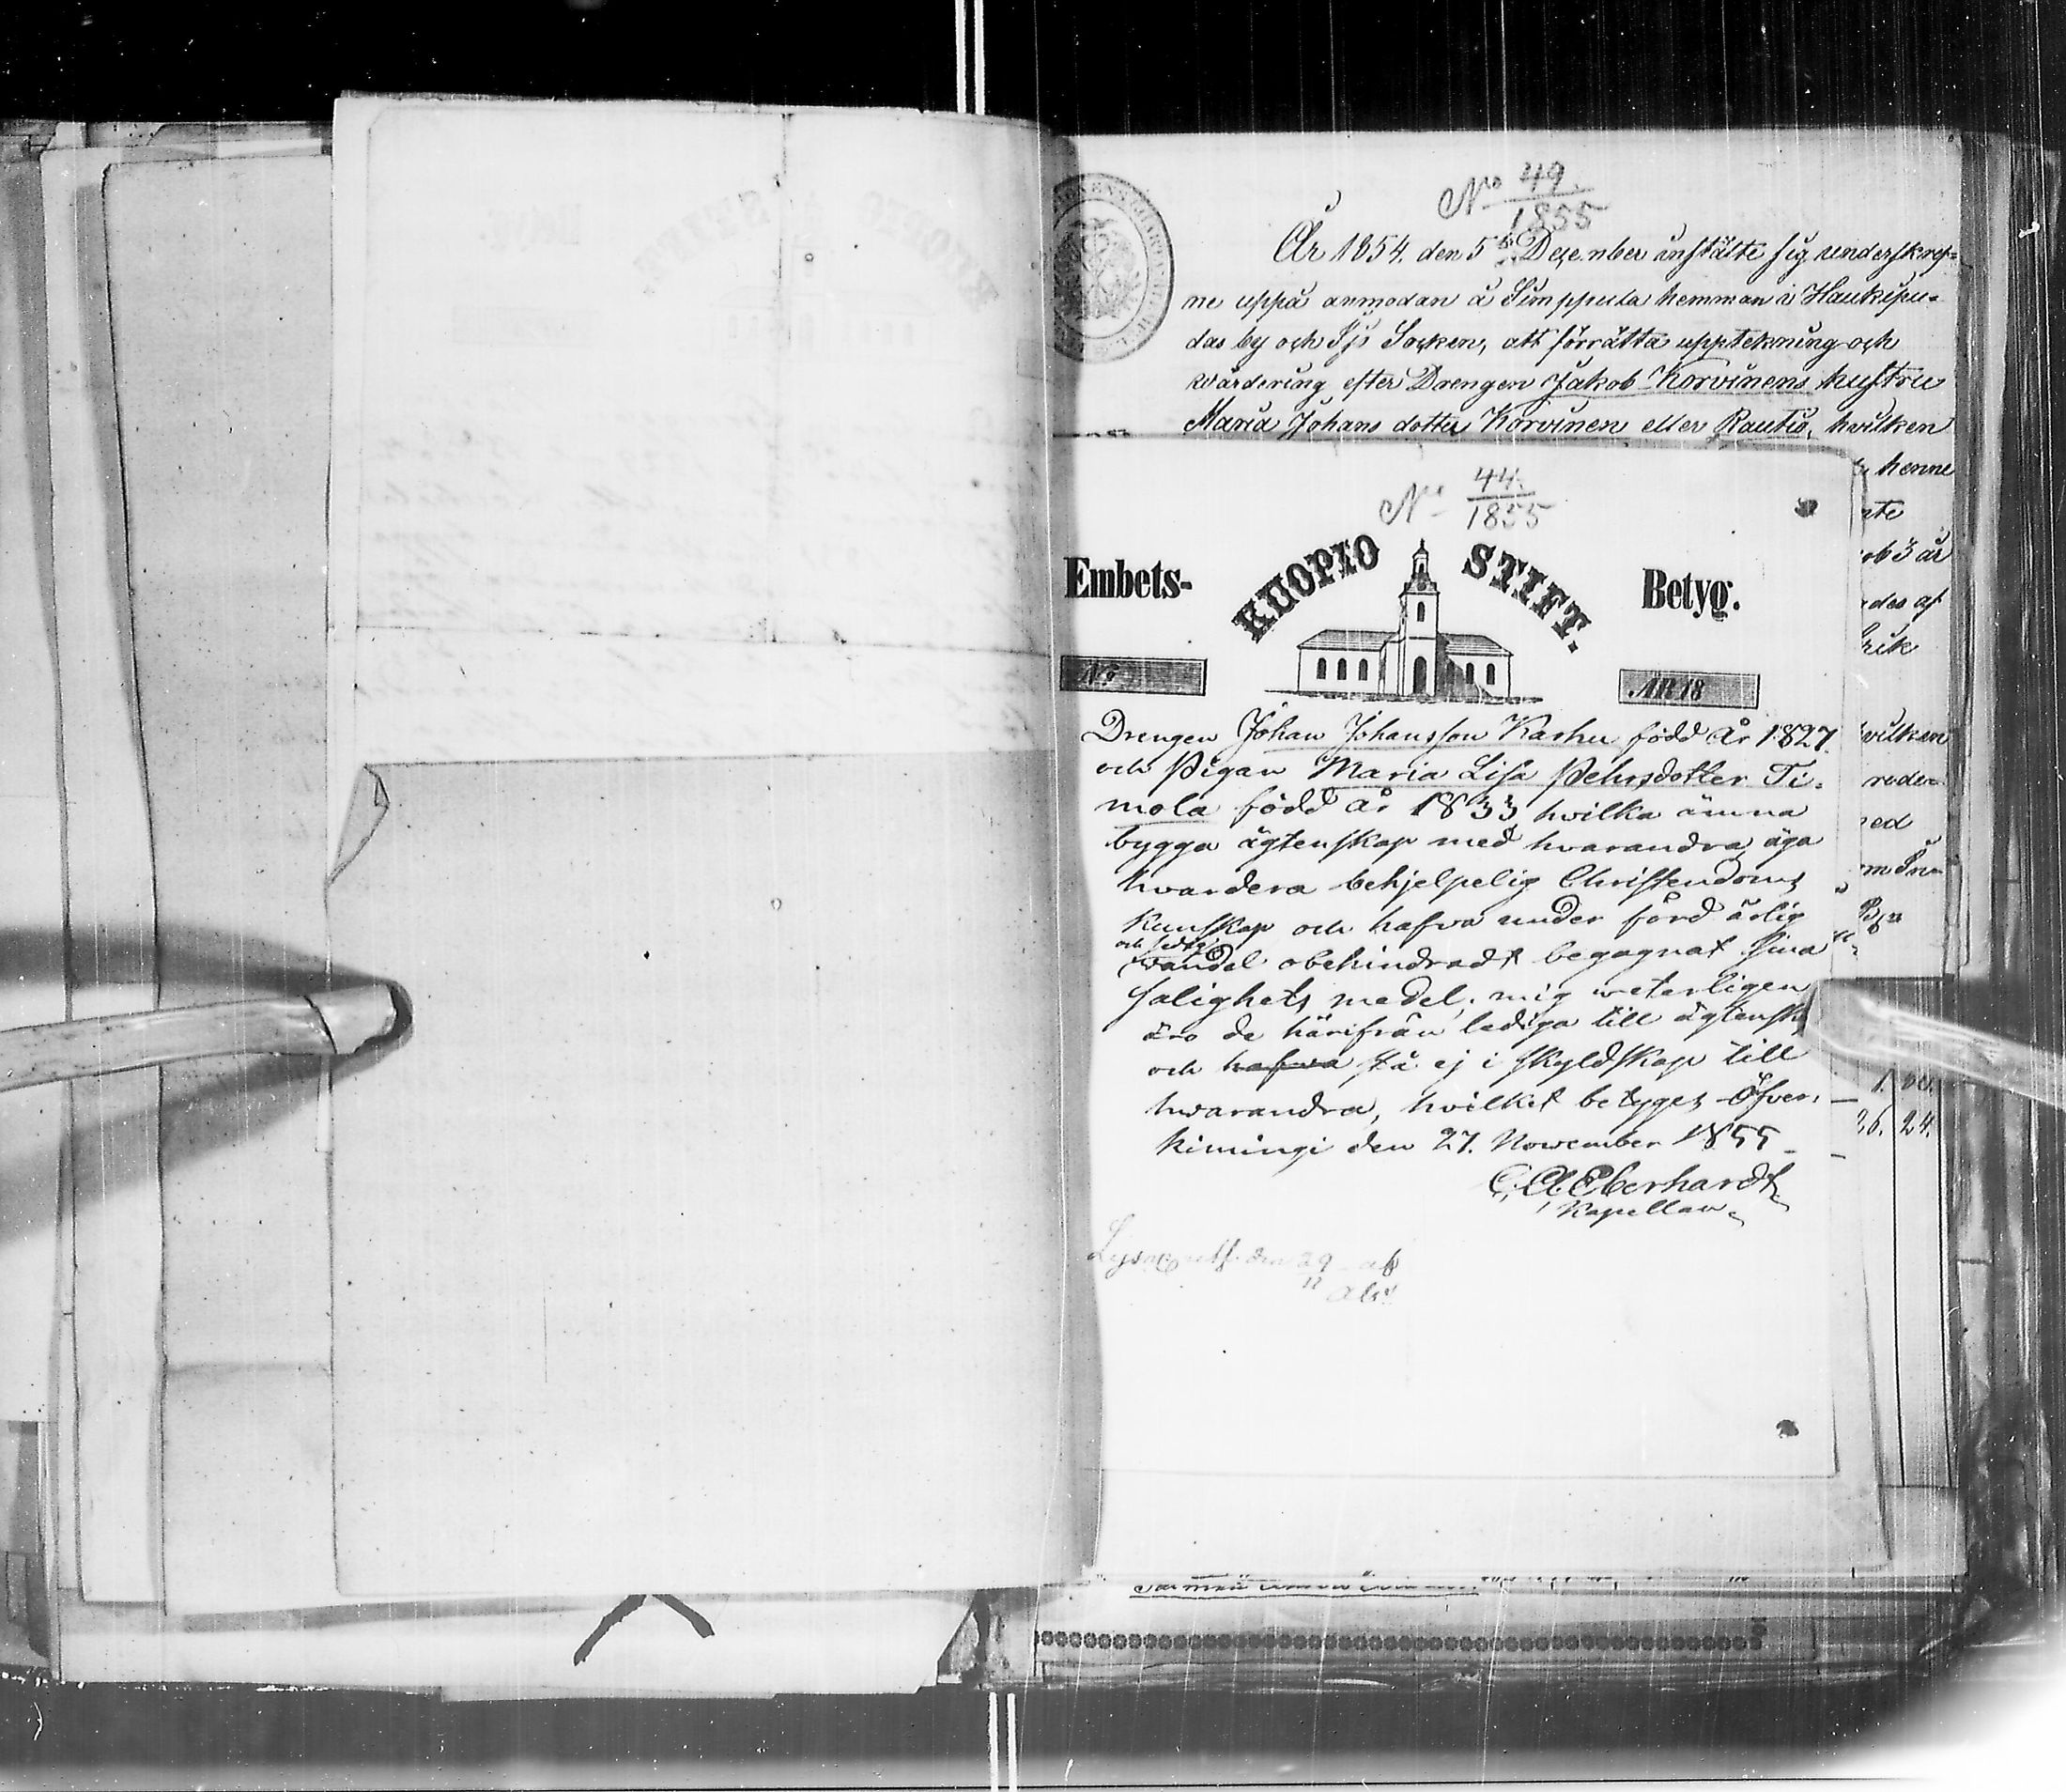 No 49.
1855
År 1854. den 5te December instälte sig underskref-
ne uppå anmodan å Simppula hemman i Haukipu-
das by och Ijo Socken, att förrätta upptekning och
wärdering efter Drengen Jakob Korvinens hustru
Maria Johans dotter Korvinen eller Rautio, hvilken
henne
ob 3 år
des af
rik
vilken
Embets-
No 44.
1855
KUOPIO STIFT.
Betyg.
No
ÅR 18
Drengen Johan Johansson Karhu född År 1827
och Pigan Maria Lisa Pehrsdotter Ti-
mola född år 1833 hvilka ämna
bygga ägtenskap med hvarandra, äga
hvardera behjelpelig Christendoms
Kunskap och hafva under förd ärlig
och sedig
wandel obehindradt begagnat sina
salighets medel; mig veterligen
äro de härifrån lediga till ägtensk
och hafva stå ej i skyldskap till
hvarandra, hvilket betyges Öfver-
kimingi den 27. November 1855
C. A. Eberhardt
Kapellan
26. 24.